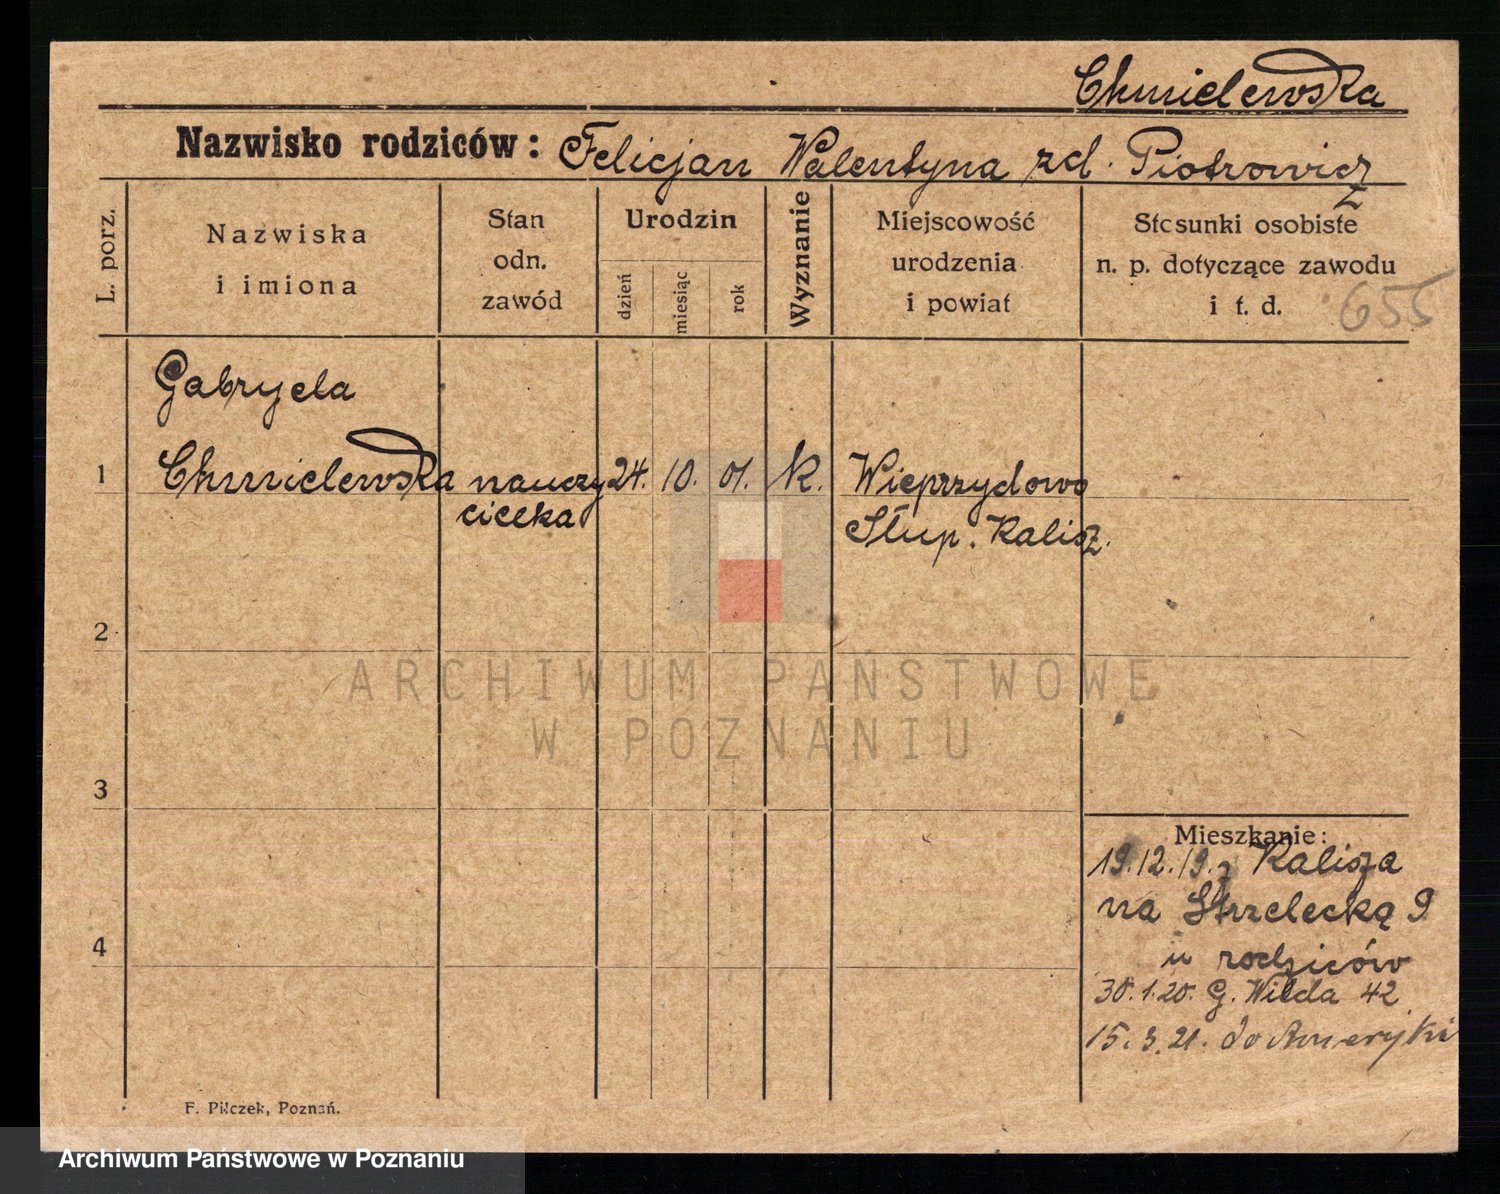 Chmielewska
Nazwisko rodziców: Felicjan Walentyna zd. Piotrowicz
L. porz.
Nazwiska
i imiona
Stan
odn.
zawód
Urodzin
dzień
miesiąc
rok
Wyznanie
Miejscowość
urodzenia
i powiat
Stosunki osobiste
n. p. dotyczące zawodu
i t. d.
655
Gabryela
1 Chmielewska nauczy 24. 10. 01. k. Wieprzydowo
cielka Słup. Kalisz.
2
3
4
Mieszkanie:
19.12.19. z Kalisza
na Strzelecką 9
u rodziców
30.1.20. G. Wilda 42
15.3.21. do Ameryki
F. Pilczek, Poznań.
ARCHIWUM PAŃSTWOWE
W POZNANIU
Archiwum Państwowe w Poznaniu